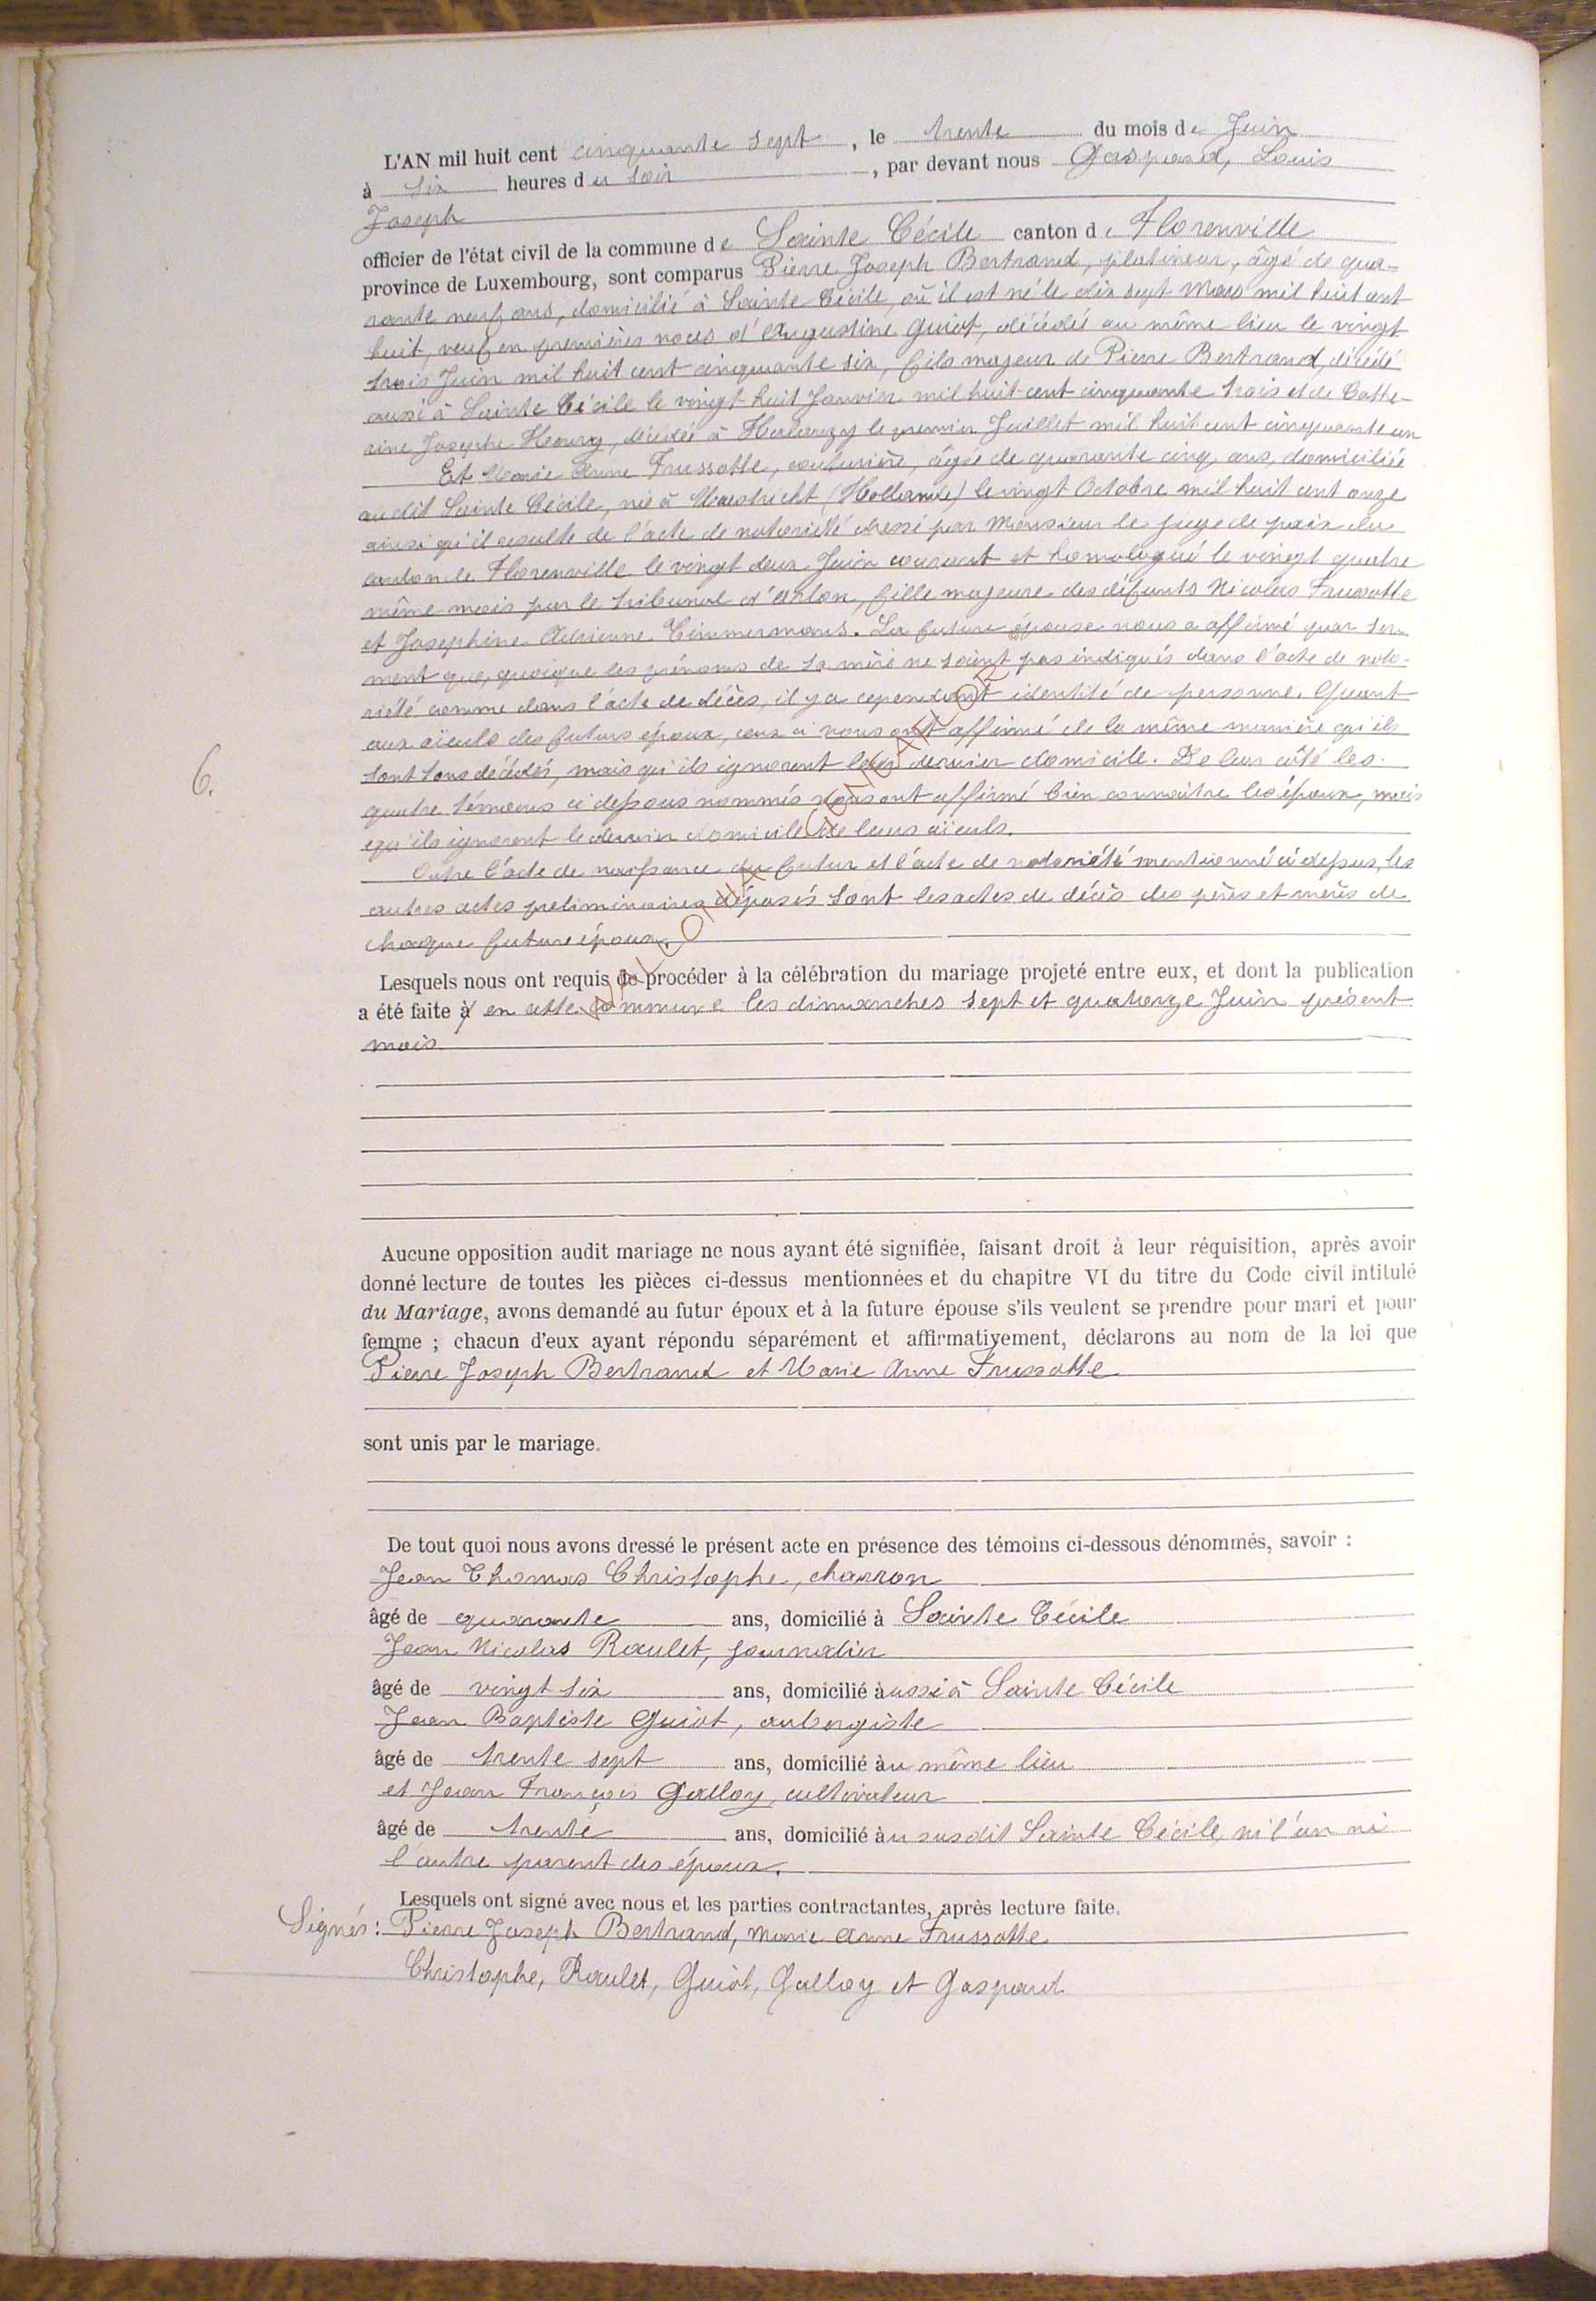 L'AN mil huit cent cinquante sept, le trente du mois de Juin
à six heures du soir, par devant nous Gaspard, Louis
Joseph
officier de l'état civil de la commune de Sainte Cécile canton de Florenville
province de Luxembourg, sont comparus Pierre Joseph Bertrand, platineur, âgé de qua-
rante neuf ans, domicilié à Sainte Cécile, où il est né le dix sept Mars mil huit cent
huit, veuf en premières noces d'Augustine Guiot, décédée au même lieu le vingt
trois Juin mil huit cent cinquante six, fils majeur de Pierre Bertrand, décédé
aussi à Sainte Cécile le vingt huit Janvier mil huit cent cinquante trois et de Cathe-
rine Josephe Henry, décédée à Halanzy le premier Juillet mil huit cent cinquante un
Et Marie Anne Frussotte, couturière, âgée de quarante cinq ans, domiciliée
au dit Sainte Cécile, née à Maestricht (Hollande) le vingt Octobre mil huit cent onze
ainsi qu'il resulte de l'acte de notorieté dressé par Monsieur le juge de paix du
canton de Florenville le vingt deux Juin courant et homologué le vingt quatre
même mois par le tribunal d'Arlon, fille majeure des défunts Nicolas Frussotte
et Josephine Adrienne Timmermans. La future épouse nous a affirmé par ser-
ment que, quoique les prénoms de sa mère ne soient pas indiqués dans l'acte de noto-
riété comme dans l'acte de décès, il y a cependant identité de personne. Quant
aux aïeuls des futurs époux, ceux ci nous ont affirmé de la même manière qu'ils
sont tous décédés, mais qu'ils ignorent leur dernier domicile. De leur côté les
6.
quatre témoins ci dessous nommés nous ont affirmé bien connaître les époux, mais
qu'ils ignorent le dernier domicile de leurs aïeuls.
Outre l'acte de naissance du futur et l'acte de notoriété mentionné ci dessus, les
autres actes preliminaires déposés sont les actes de décès des pères et mères de
chaque future époux.
Lesquels nous ont requis de procéder à la célébration du mariage projeté entre eux, et dont la publication
a été faite à en cette commune les dimanches sept et quatorze Juin présent
mois
Aucune opposition audit mariage ne nous ayant été signifiée, faisant droit à leur réquisition, après avoir
donné lecture de toutes les pièces ci-dessus mentionnées et du chapitre VI du titre du Code civil intitulé
du Mariage, avons demandé au futur époux et à la future épouse s'ils veulent se prendre pour mari et pour
femme ; chacun d'eux ayant répondu séparément et affirmativement, déclarons au nom de la loi que
Pierre Joseph Bertrand et Marie Anne Frussotte
sont unis par le mariage.
De tout quoi nous avons dressé le présent acte en présence des témoins ci-dessous dénommés, savoir :
Jean Thomas Christophe, charron
âgé de quarante ans, domicilié à Sainte Cécile
Jean Nicolas Raulet, journalier
âgé de vingt six ans, domicilié aussi à Sainte Cécile
Jean Baptiste Guiot, aubergiste
âgé de trente sept ans, domicilié au même lieu
et Jean François Galloy, cultivateur
âgé de trente ans, domicilié au susdit Sainte Cécile, ni l'un ni
l'autre parent des époux.
Lesquels ont signé avec nous et les parties contractantes, après lecture faite.
Signés : Pierre Joseph Bertrand, Marie Anne Frussotte
Christophe, Raulet, Guiot, Galloy et Gaspard